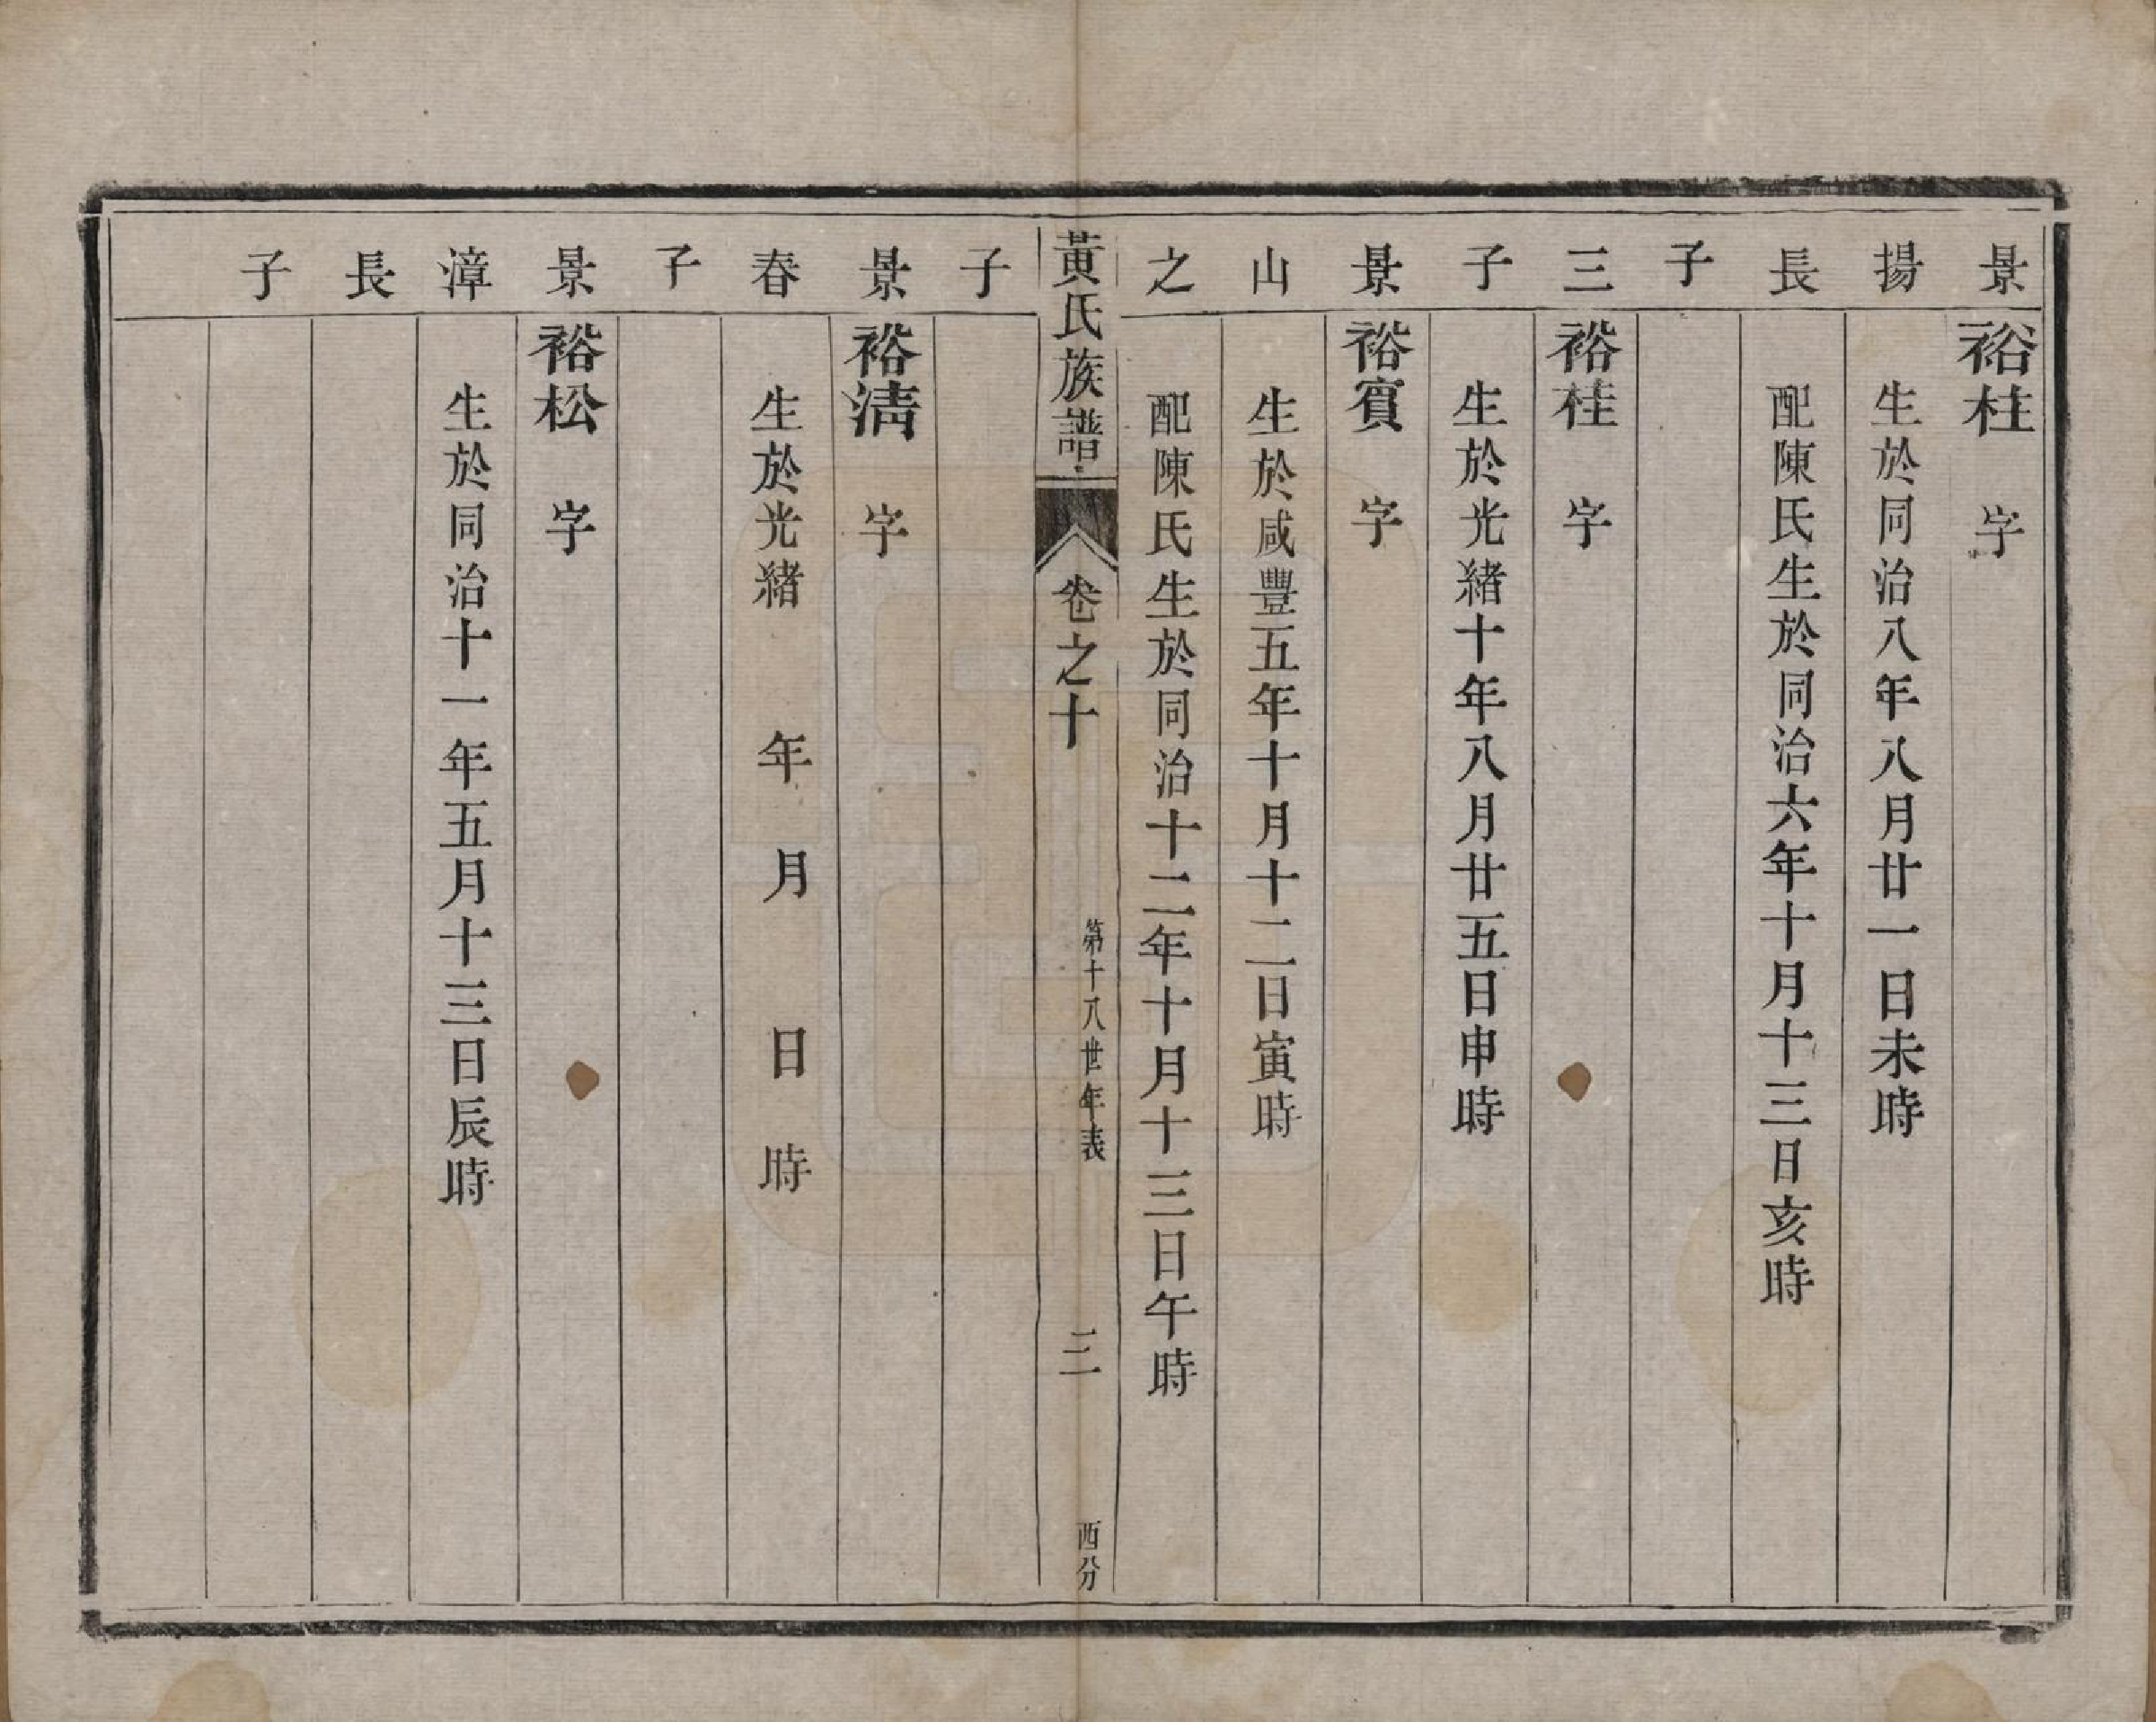 景揚長子
裕柱　字
生於同治八年八月廿一日未時
配陳氏生於同治六年十月十三日亥時
三子
裕桂　字
生於光緒十年八月廿五日申時
景山之子
裕賓　字
生於咸豐五年十月十二日寅時
配陳氏生於同治十二年十月十三日午時
黃氏族譜
卷之十
第十八世年表
三
西分
景春子
裕清　字
生於光緒　年　月　日　時
景漳長子
裕松　字
生於同治十一年五月十三日辰時